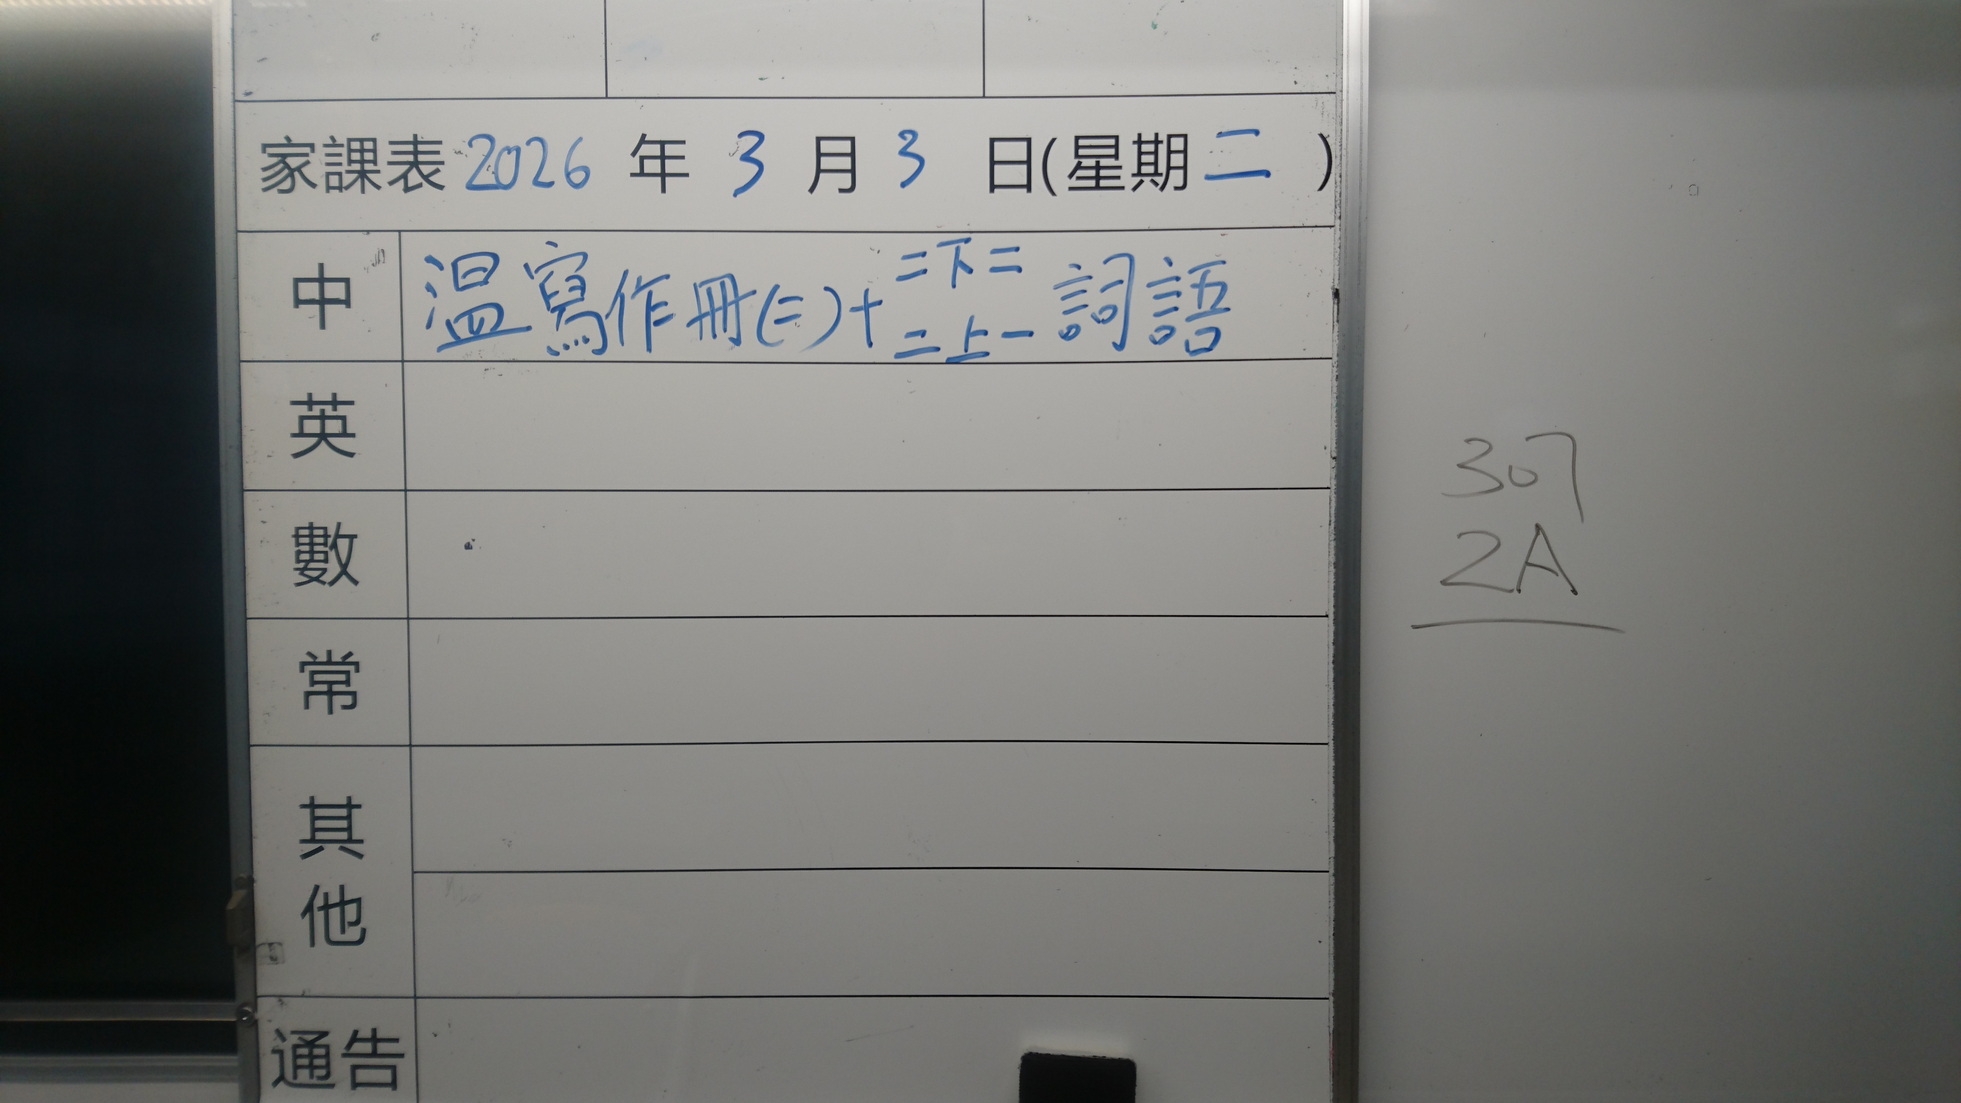 家課表 2026 年 3 月 3 日(星期二)
中 温寫作冊(二)+ 二下二 二上一 詞語
英
數
常
其他
通告
307
2A